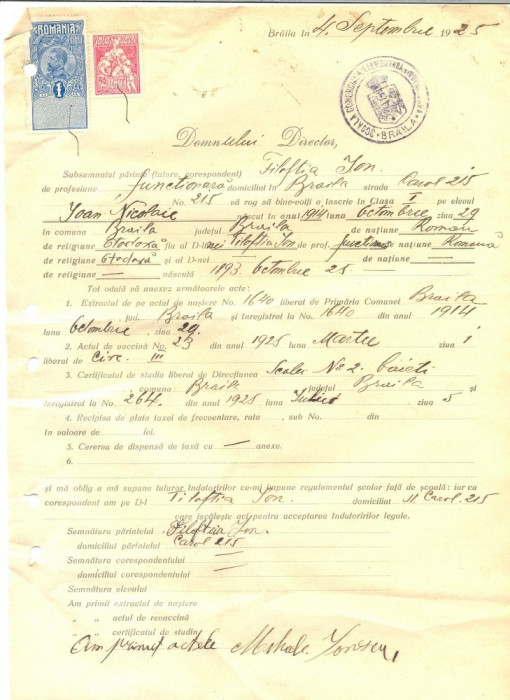 ROMANIA
1
Brăila în 4 Septembrie 1925
ȘCOALA COMERCIALĂ
BRAILA
Domnului Director,
Subsemnatul părinte (tutore, corespondent) Filoftia Ion
de profesiune functionară domiciliat în Braila strada Carol 215
No. 215 vă rog să bine-voiți a înscrie în Clasa I pe elevul
Ioan Nicolaie născut în anul 1914 luna Octombrie ziua 29
în comuna Braila județul Braila de națiune Român
de religiune Otodoxă fiu al D-lnei Filoftia Ion de prof. functionar de națiune Română
de religiune Otodoxă și al D-nei — de națiune —
de religiune — născută 1893 Octombrie 25
Tot odată vă anexez următoarele acte:
1. Extractul de pe actul de naștere No. 1640 liberat de Primăria Comunei Braila
jud. Braila și înregistrat la No. 1640 din anul 1914
luna Octombrie ziua 29.
2. Actul de vaccină No. 23 din anul 1925 luna Martie ziua 1
liberat de Circ. III
3. Certificatul de studii liberat de Direcțiunea Scoalei No 2. baieti
comuna Braila județul Braila și
înregistrat la No. 264 din anul 1925 luna ziua 5
4. Recipisa de plata taxei de frecventare, rata , sub No. din
în valoare de lei.
5. Cererea de dispensă de taxă cu — anexe.
6.
și mă oblig a mă supune tuturor îndatoririlor ce-mi impune regulamentul școlar față de școală: iar ca
corespondent am pe D-l Filoftia Ion. domiciliat Carol 215
care iscălește aci pentru acceptarea îndatoririlor legale.
Semnătura părintelui Filoftia Ion.
domiciliul părintelui Carol 215
Semnătura corespondentului —
domiciliul corespondentului —
Semnătura elevului
Am primit extractul de naștere
„ „ actul de revaccină
„ „ certificatul de studii
Am primit actele Ionescu